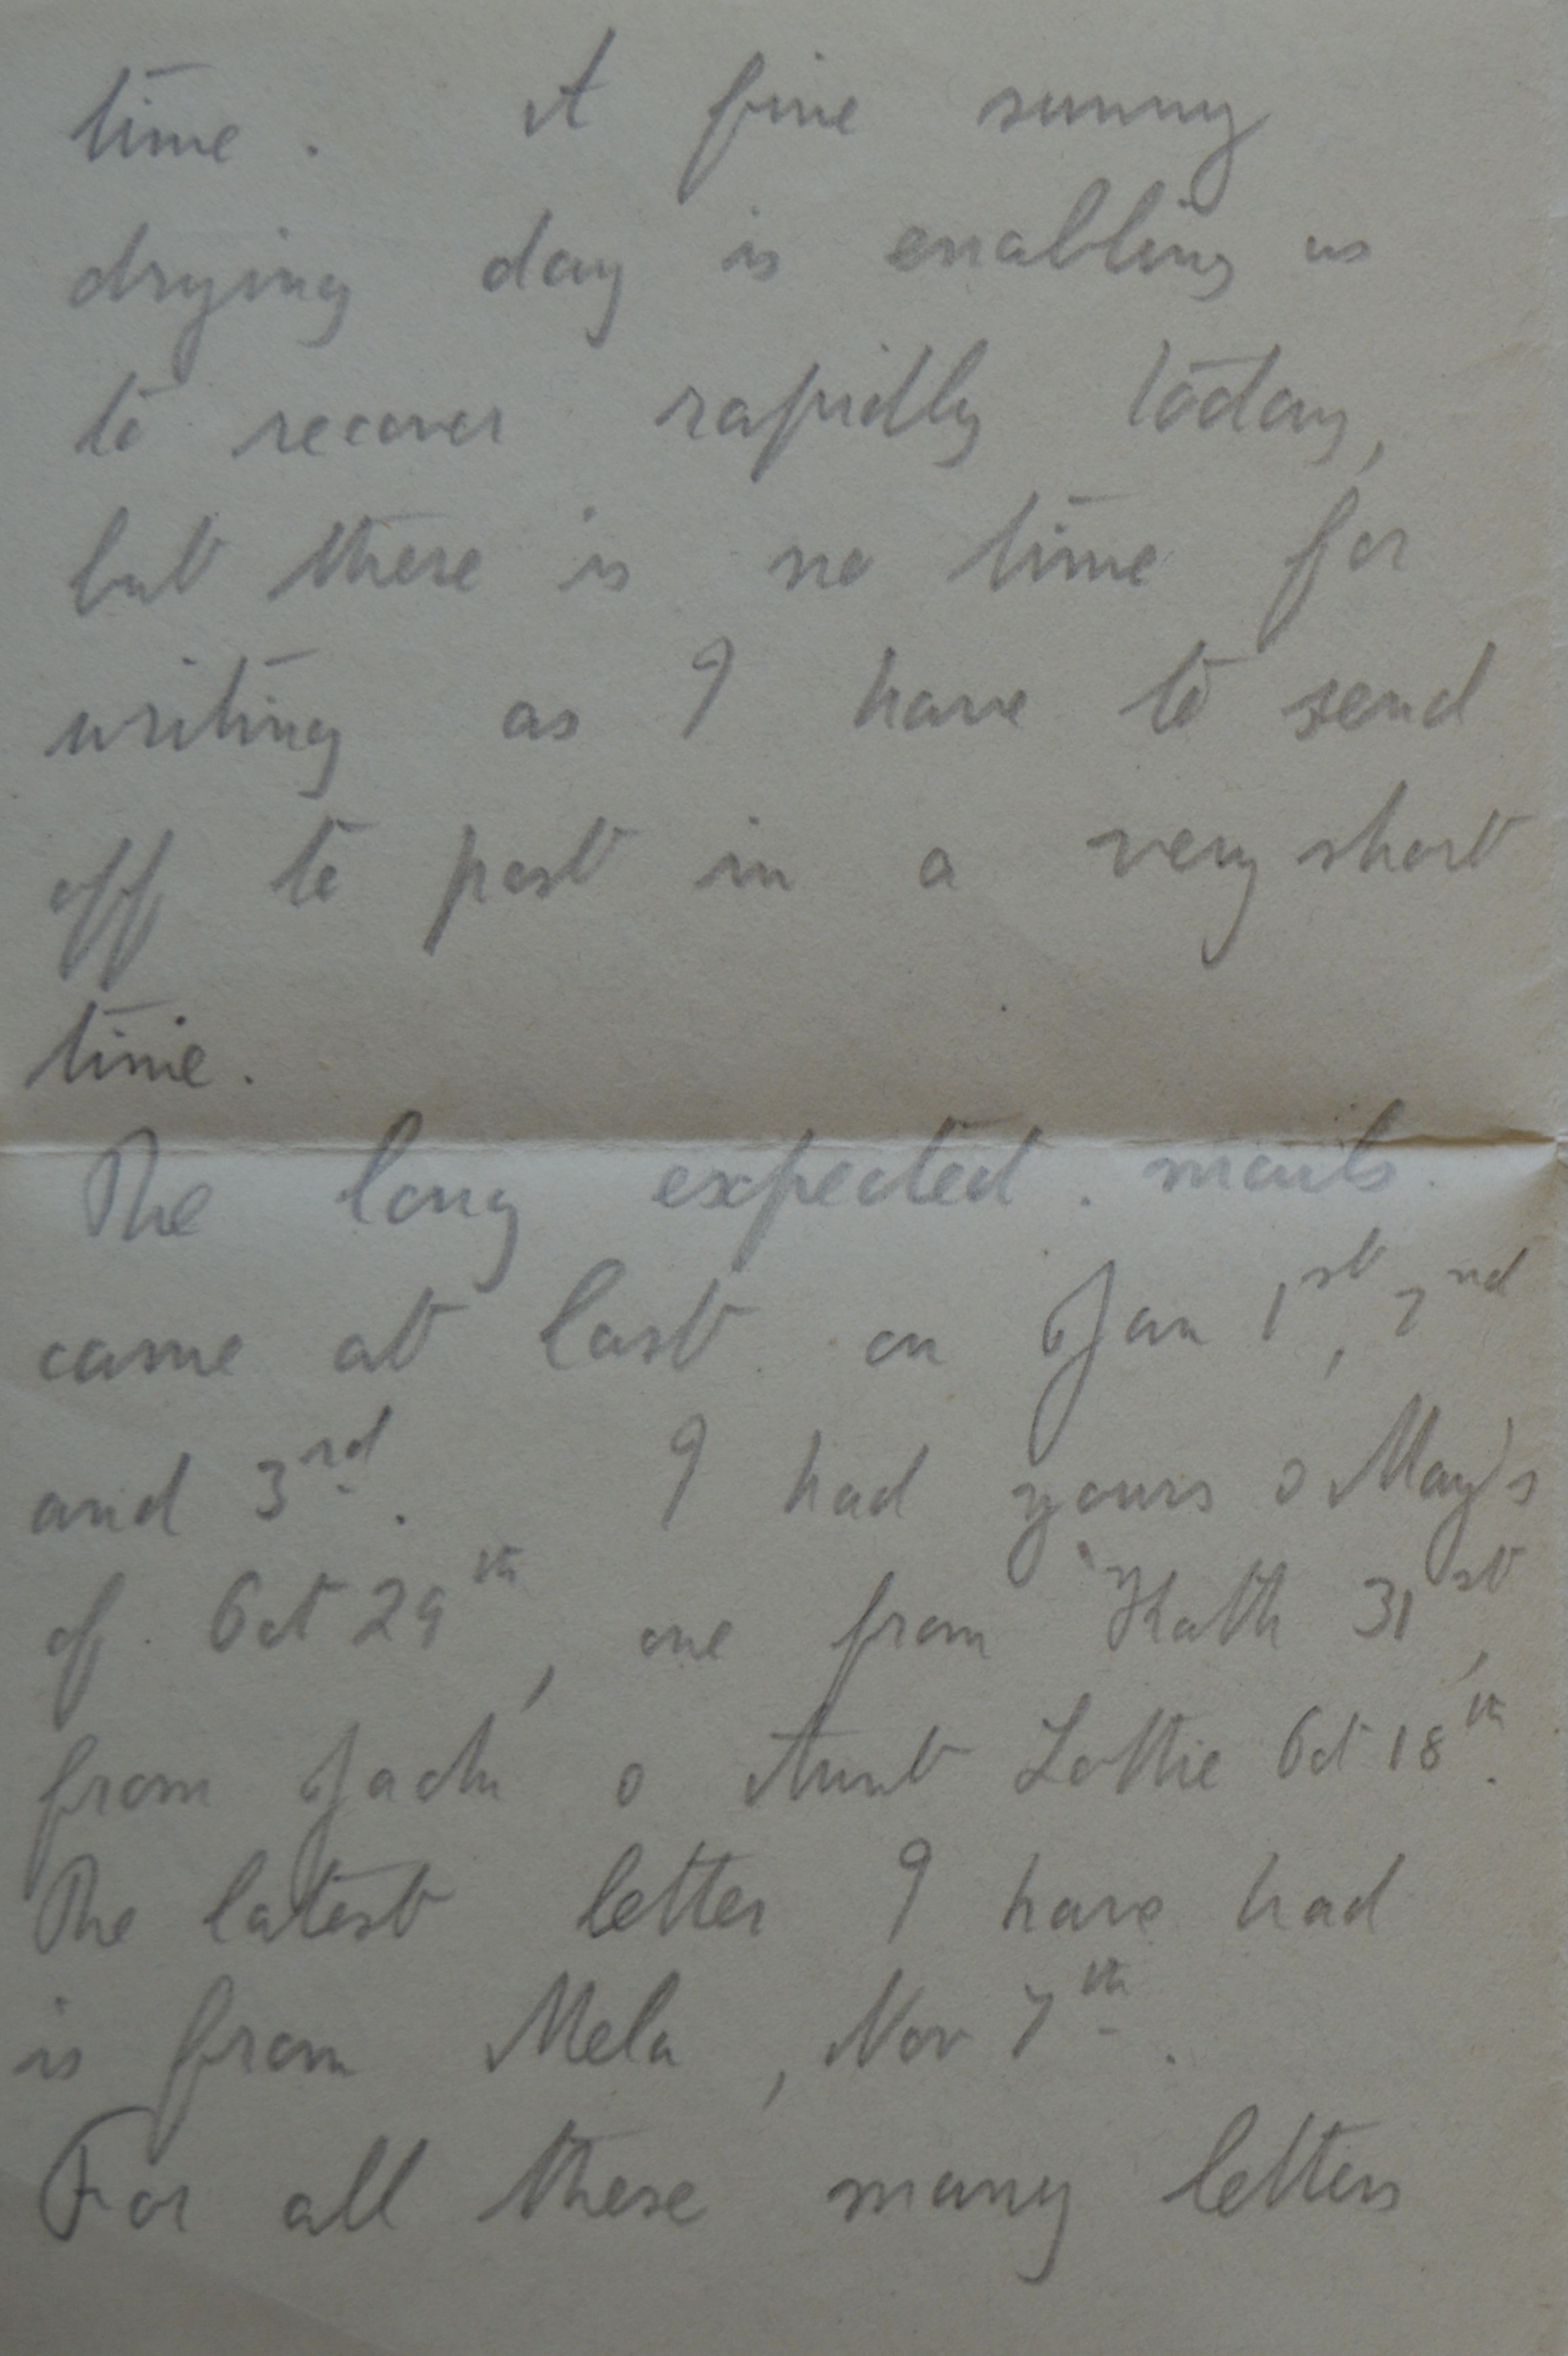 time. A fine sunny
drying day is enabling us
to recover rapidly today,
but there is no time for
writing as I have to send
off to post in a very short
time.
The long expected mails
came at last on Jan 1st, 2nd
and 3rd. I had yours & May's
of Oct 29th, one from Kath 31st,
from Jack & Aunt Lottie Oct 18th.
The latest letter I have had
is from Mela, Nov 7th.
For all these many letters